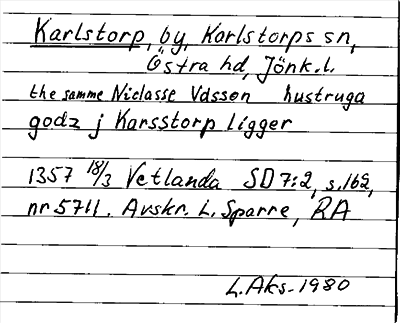 Karlstorp, by, Karlstorps sn,
Östra hd, Jönk.l.
the samme Niclasse Vdsson hustruga
godz j Karsstorp ligger
1357 18/3 Vetlanda SD 7:2, s.162,
nr 5711. Avskr. L. Sparre, RA
L.Aks-1980